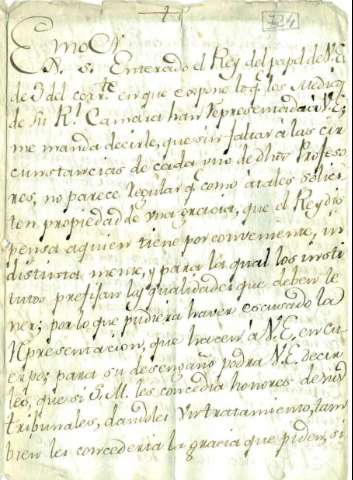 724
Emo. S.
S. Enterado el Rey del papel de V.E.
de 3 del corrte. en que expone lo q. los Medicos
de Su Rl. Camara han representado a V.E.
me manda decirle, que sin faltar à las cir
cunstancias de cada uno de dhos Profeso
res, no parece regular q. como à tales solici
ten propiedad de una gracia, que el Rey dis
pensa a quien tiene por conveniente, in
distinta mente, y para la qual los insti
tutos prefijan las qualidades que deben te
ner; por lo que pudiera haver escusado la
representacion, que hacen à V.E. en Cu
erpo; para su desengaño podrà V.E. decir
les, que si S. M. les concedia honores de
tribunales, dandoles un tratamiento, tam
bien les concederia la gracia que piden, si